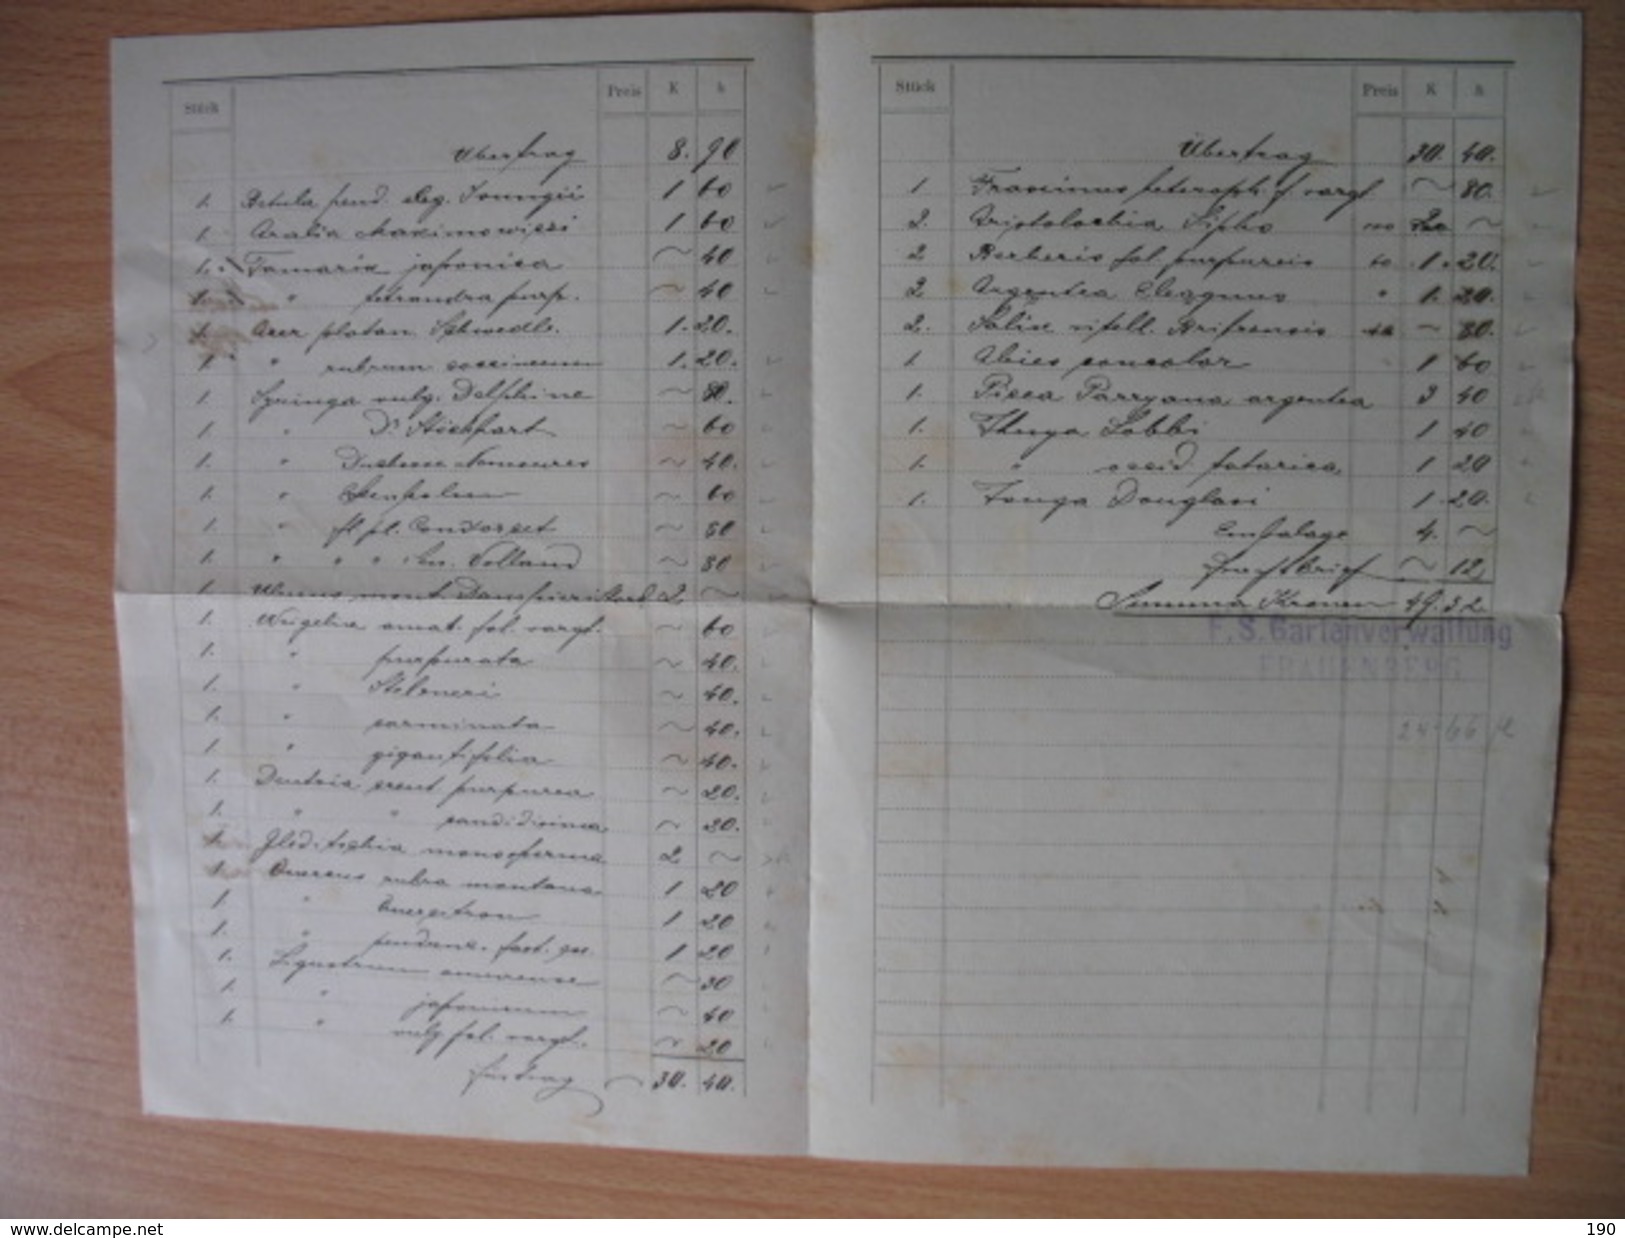 Stück Preis K h
Übertrag 8. 90
1. Betula pend. eleg. Youngii 1 60
1. Aralia Maximowiczi 1 60
1. Tamarix japonica ~ 40
1. " tetrandra purp. ~ 40
1. Acer platan. Schwedl. 1. 20.
1. " rubrum coccineum 1. 20.
1. Syringa vulg. Delphine ~ 80.
1. " Dr. ~ 60
1. " Duchesse Nemours ~ 40.
1. " ~ 60
1. " fl. pl. Condorcet ~ 80
1. " " " Volland ~ 80
1. Ulmus mont. 2. ~
1. Weigelia amat. fol. vargt. ~ 60
1. " purpurata ~ 40.
1. " Stelzneri ~ 40.
1. " carminata ~ 40.
1. " gigantiflolia ~ 40.
1. Deutzia crent purpurea ~ 20.
1. " " candidisima ~ 20.
1. Gleditschia monosperma 2. ~
1. Quercus rubra montana 1 20
1. " Quercitron 1 20
1. " pendunc. fast. 1 20
1. Ligustrum amurense ~ 30
1. " japonicum ~ 40
1. " vulg. fol. vargt. ~ 20
Fürtrag ~ 30. 40.
Stück Preis K h
Übertrag 30. 40.
1. Fraxinus heteroph. f. vargt ~ 80.
2. Aristolochia Sipho ~
2 Berberis fol. purpureis 60 1. 20.
2. Argentea Eleagnus " 1. 20.
2. Salix vitell. Britzensis 40 ~ 80.
1. Abies concolor 1 60
1. Picea Parryana argentea 3 40
1. Thuya Lobbi 1 40
1. " occid. tatarica. 1 20
1. Douglasi 1. 20.
Embalage 4. ~
Frachtbrief ~ 12.
Summa Kronen 49. 32.
F. S. Gartenverwaltung
FRAUENBERG
24.66
www.delcampe.net
easypen
190